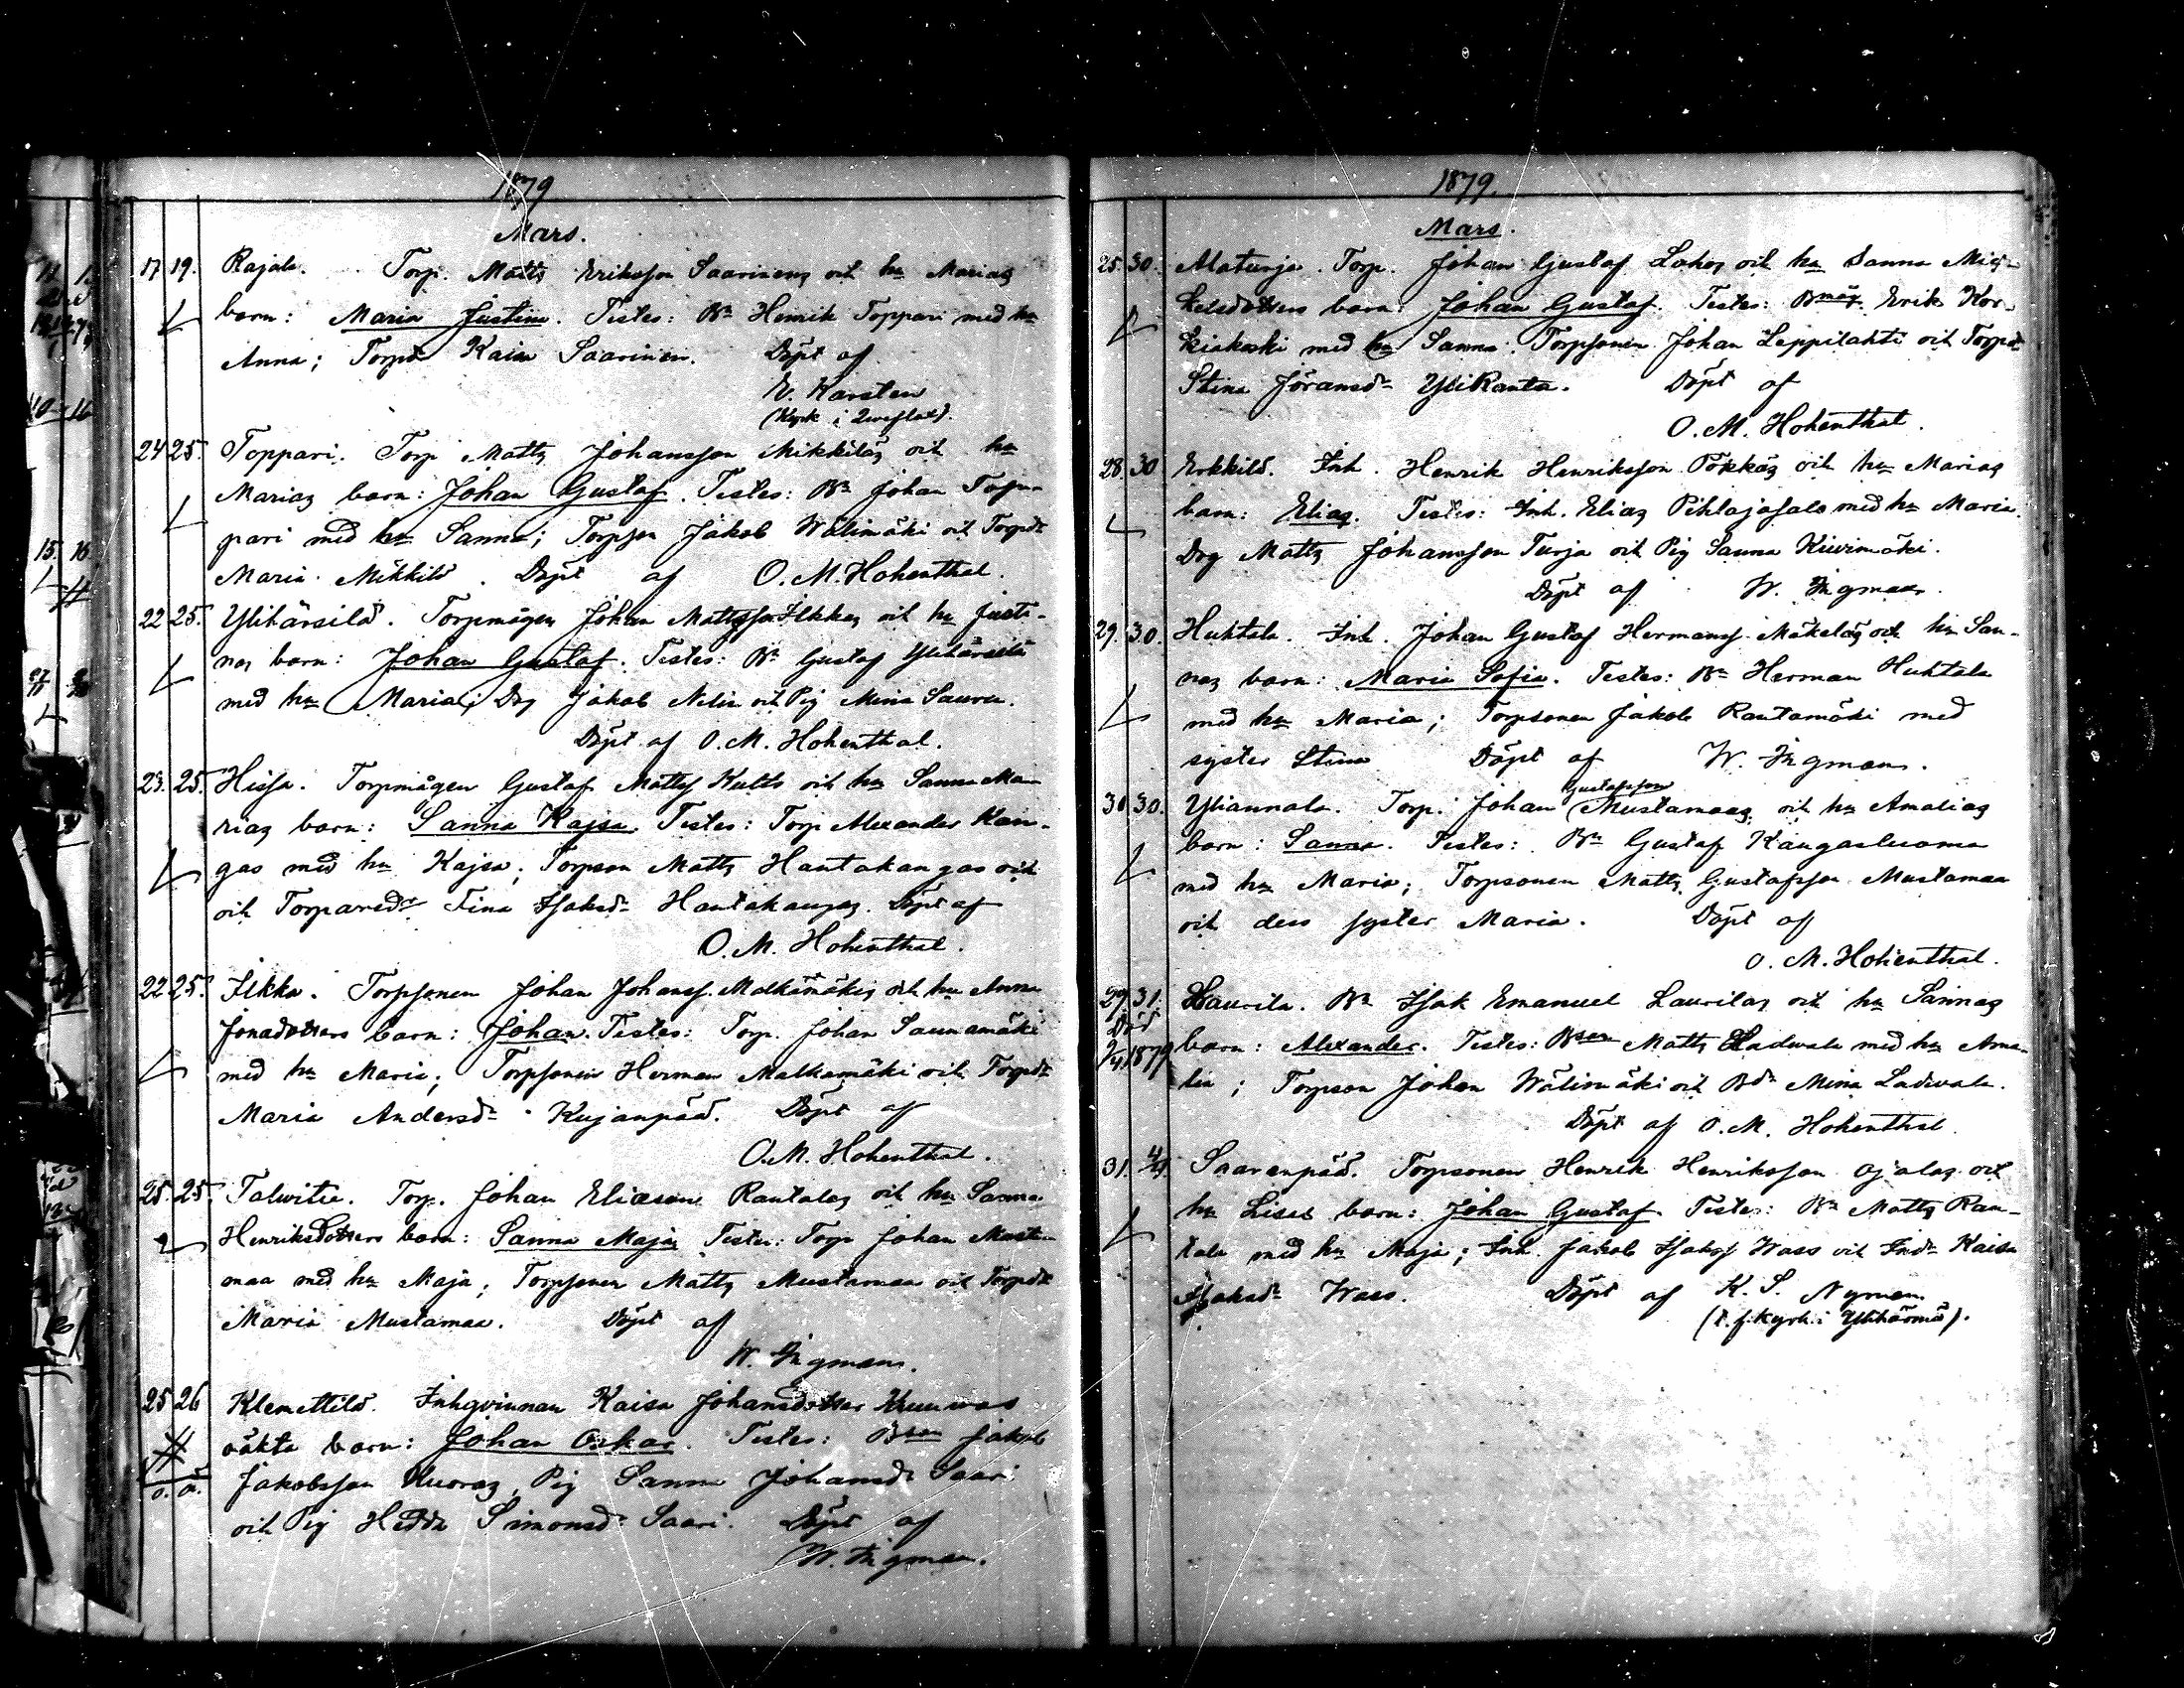 1879
Mars.
17 19. Rajala. Torp. Matts Eriksson Saarinens och hu Marias
barn: Maria Justina. Testes: Bn Henrik Toppari med hu
Anna; Torpdr Kaisa Saarinen. Döpt af
E. Karsten
(Kyrk i Qweflax).
24 25. Toppari. Torp Matts Johansson Mikkiläs och hu
Marias barn: Johan Gustaf. Testes: Bn Johan Top-
pari med hu Sanna; Torpson Jakob Wälimäki och Torpdr
Maria Mikkilä. Döpt af O. M. Hohenthal.
22 25. Ylihärsilä. Torpmågen Johan Mattsson Ilkkas och hu Justi-
nas barn: Johan Gustaf. Testes: Bn Gustaf Ylihärsilä
med hu Maria; Drg Jakob och Pig Mina
Döpt af O. M. Hohenthal.
23. 25. Hissa. Torpmågen Gustaf Mattss Kults och hu Sanna Ma-
rias barn: Sanna Kajsa. Testes: Torp Alexander Kan-
gas med hu Kajsa; Torpson Matts Hautakangas och
och Torparedr Fina Isaksdr Hautakangas. Döpt af
O. M. Hohenthal.
22 25. Ilkka. Torpsonen Johan Johanss. Malkamäkis och hu Anna
Jonadotters barn: Johan. Testes: Torp. Johan Saunamäki
med hu Maria; Torpsonen Herman Malkamäki och Torpdr
Maria Andersdr Kujanpää. Döpt af
O. M. Hohenthal.
25. 25. Talwitie. Torp. Johan Eliassons Rantalas och hu Sanna
Henriksdotters barn: Sanna Maja. Testes: Torp Johan Musta-
maa med hu Maja; Torpsonen Matts Mustamaa och Torpdr
Maria Mustamaa. Döpt af
W. Ingman.
25 26 Klemettilä. Inhqvinnan Kaisa Johansdotter
oäkta barn: Johan Oskar. Testes: Bson Jakob
o. ä. Jakobsson Kuoras, Pig Sanna Johansdr Saari
och Pig Hedda Simonsdr Saari. Döpt af
W. Ingman.
1879.
Mars.
25. 30. Alaturja. Torp. Johan Gustaf Lahos och hu Sanna Mic-
kelsdotters barn: Johan Gustaf. Testes: Bmåg. Erik Kor-
kiakoski med hu Sanna. Torpsonen Johan Leppilahti och Torpdr
Stina Göransdr YliKanta. Döpt af
O. M. Hohenthal.
28. 30 Erkkilä. Inh. Henrik Henriksson Pökkäs och hu Marias
barn: Elias. Testes: Inh. Elias Pihlajasalo med hu Maria.
Drg Matts Johansson Turja och Pig Sanna Kiwimäki.
Döpt af W. Ingman.
29. 30. Huhtala. Inh. Johan Gustaf Hermanss. Mäkeläs och hu San-
nas barn: Maria Sofia. Testes: Bn Herman Huhtala
med hu Maria; Torpsonen Jakob Rautamäki med
syster Stina Döpt af W. Ingman.
30 30. Yliannala. Torp. Johan Gustafsson Mustamaas och hu Amalias
barn: Sanna. Testes: Bn Gustaf Kangasluoma
med hu Maria; Torpsonen Matts Gustafsson Mustamaa
och dess syster Maria. Döpt af
O. M. Hohenthal.
29 31. Laurila. Bn Isak Emanuel Laurilas och hu Sannas
Död
1879 barn: Alexander. Testes: Bson Matts Ladwala med hu Ama-
lia; Torpson Johan Wälimäki och Bdr Mina Ladwala.
Döpt af O. M. Hohenthal.
31. Saarenpää. Torpsonen Henrik Henriksson Ojalas och
hu Lisas barn: Johan Gustaf. Testes: Bn Matts Ran-
tala med hu Maja; Inh. Jakob Isakss Wass och Indr Kaisa
Isaksdr Wass. Döpt af K. S. Nyman
(t. f. kyrkh. i Ylihärmä).